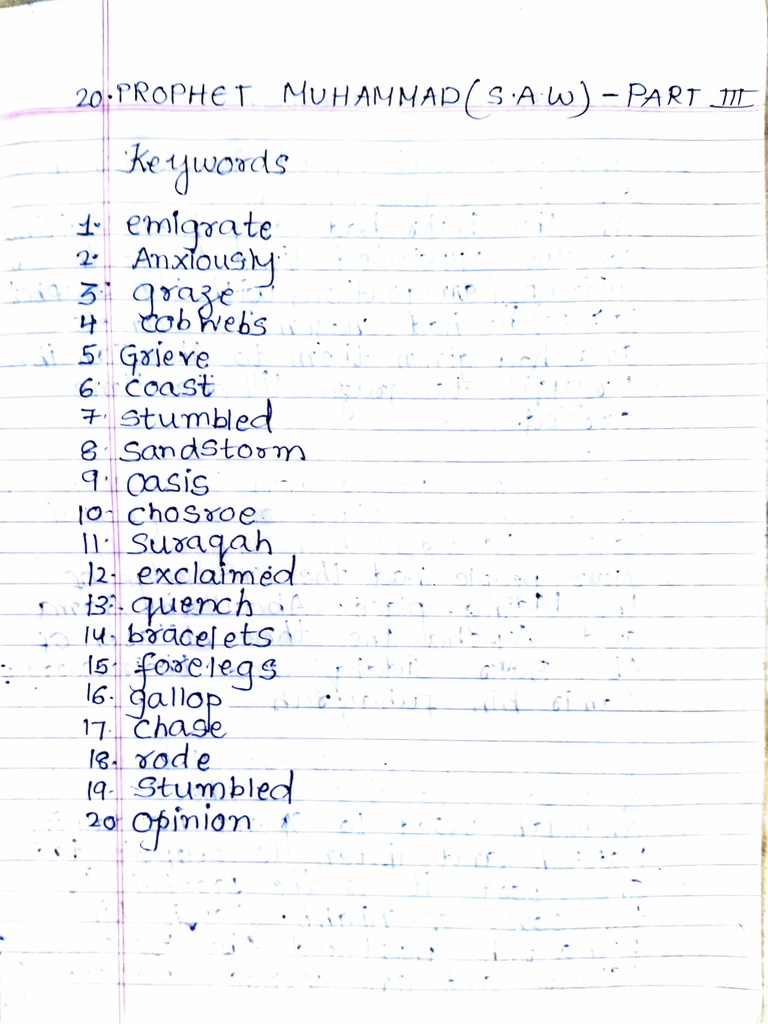 20. PROPHET MUHAMMAD (S.A.W) - PART III
Keywords
1. emigrate
2. Anxiously
3. graze
4 cobwebs
5. Grieve
6. coast
7. stumbled
8. Sandstorm
9. oasis
10. chosroe
11. Suraqah
12. exclaimed
13. quench
14. bracelets
15. forelegs
16. gallop
17. chase
18. rode
19. Stumbled
20 opinion